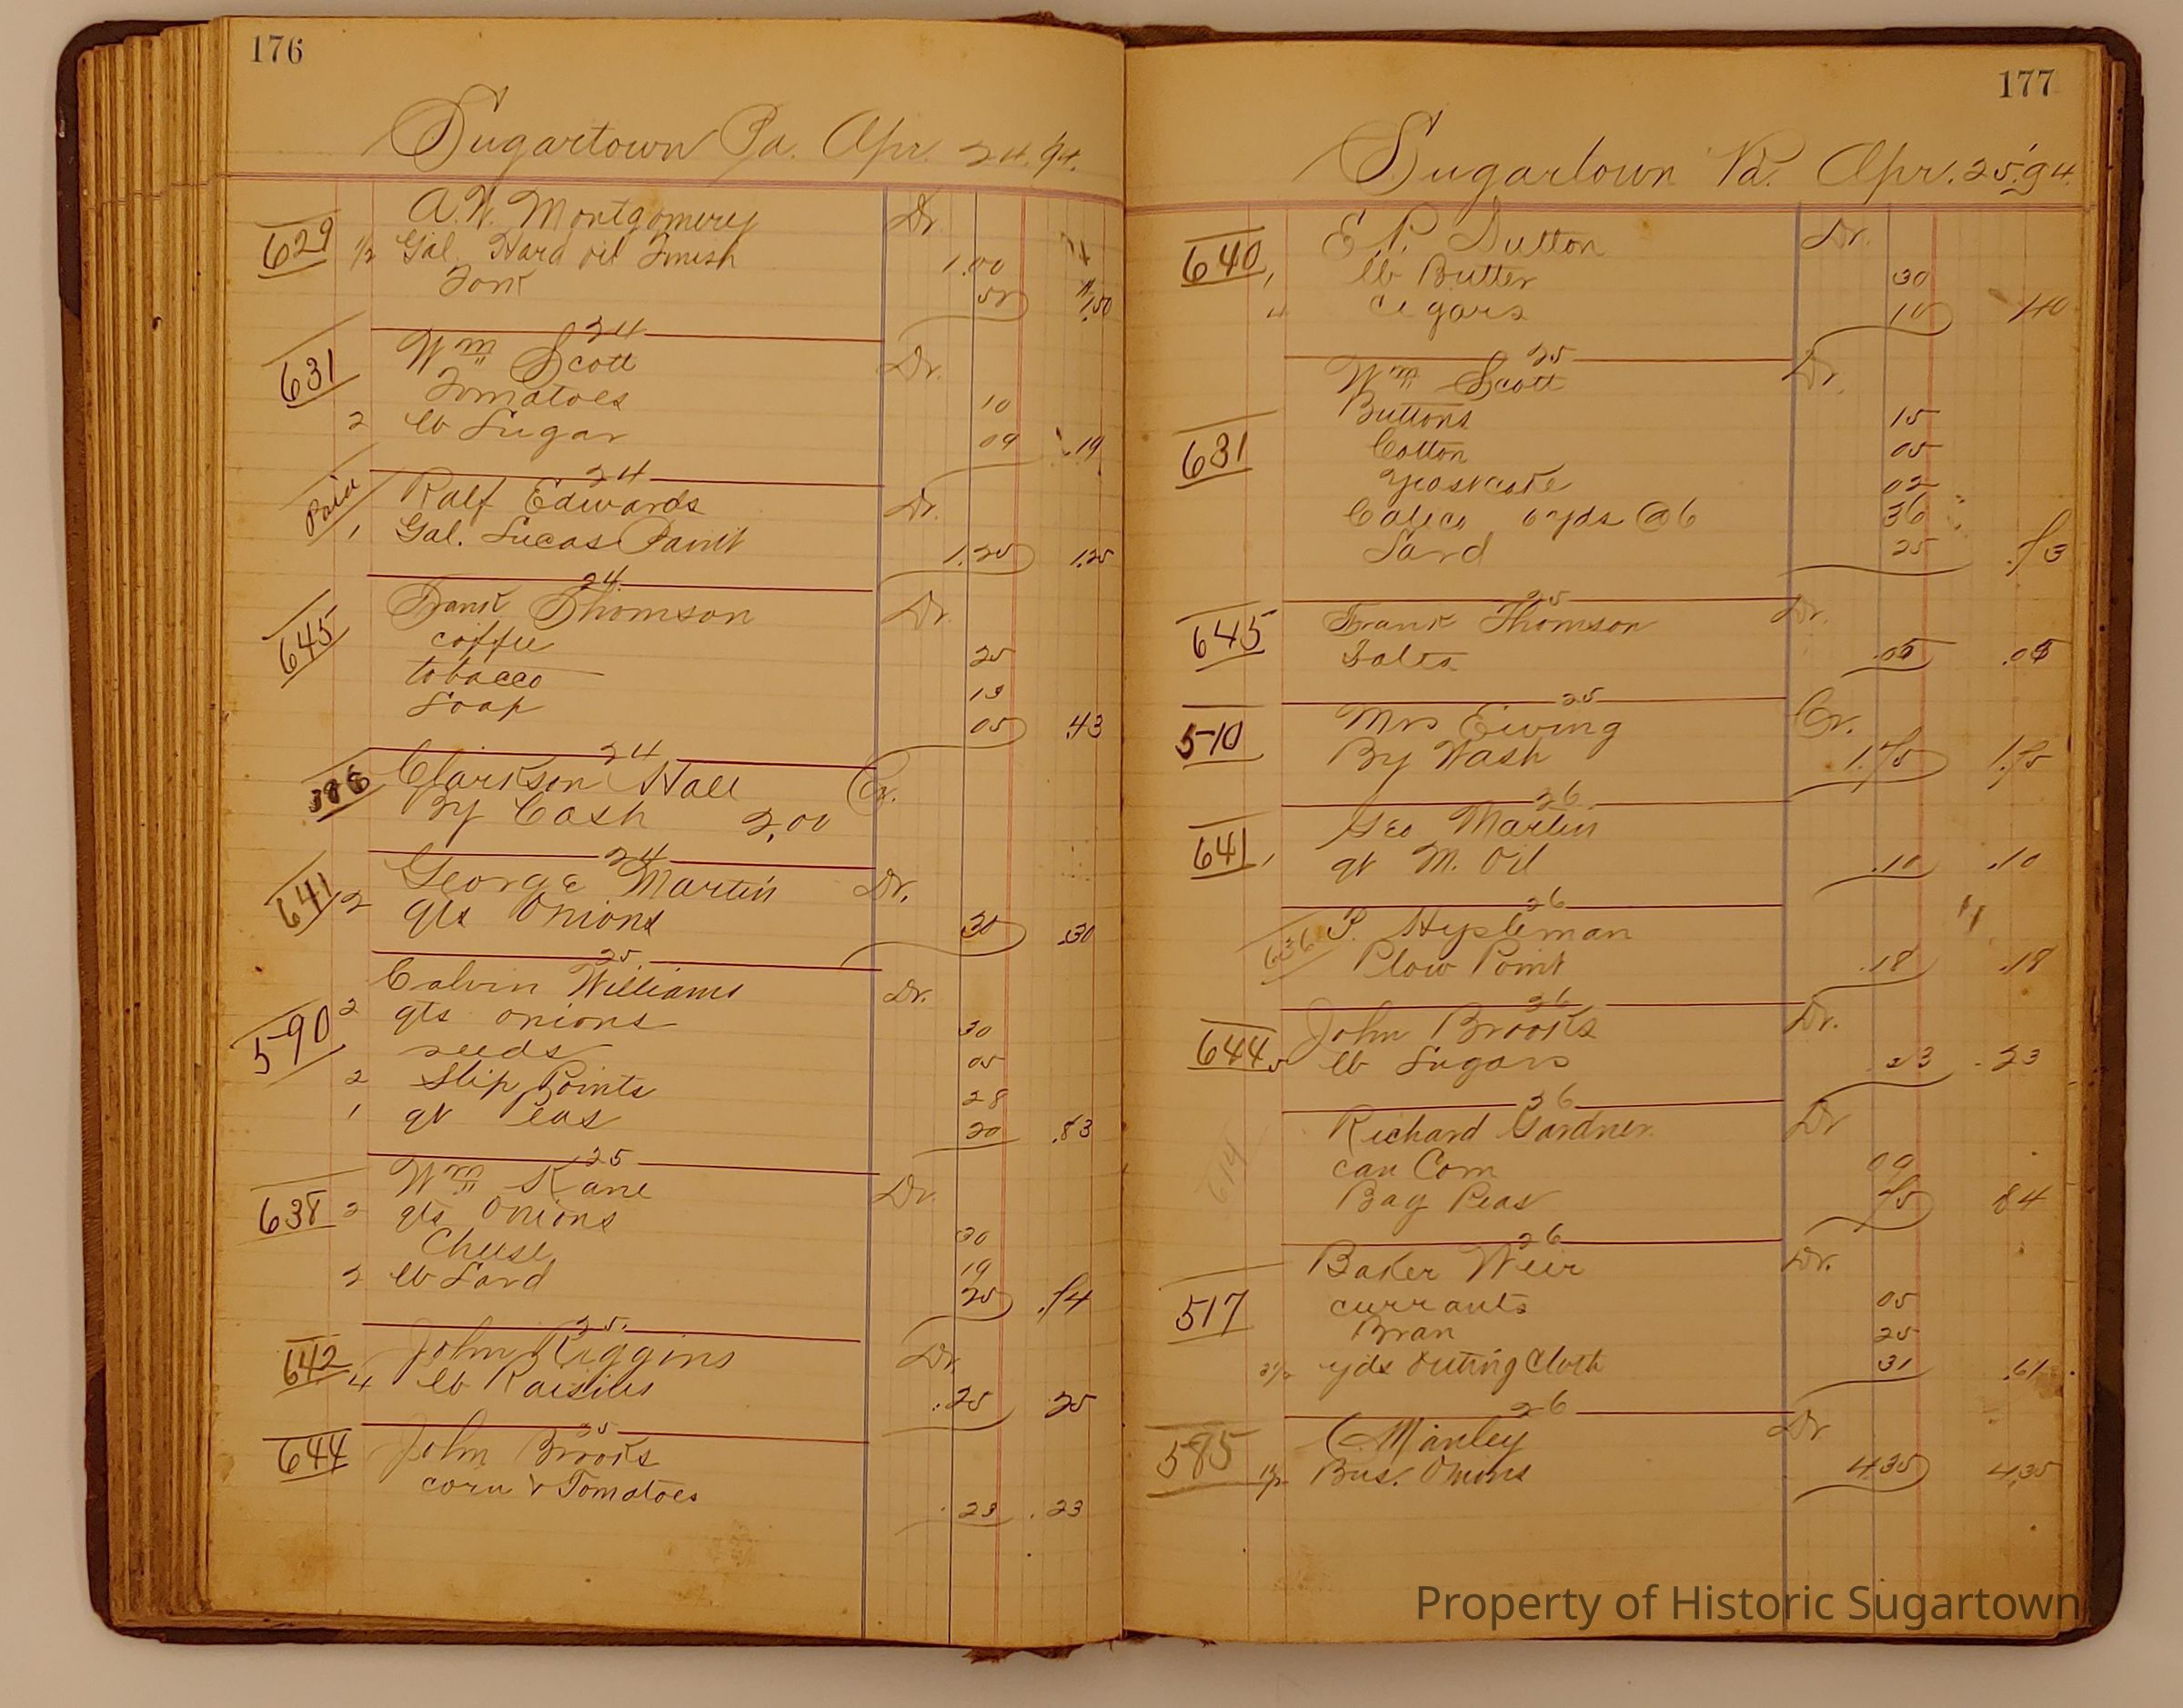 176
Sugartown Pa. Apr. 24. 94.
629 A. W. Montgomery Dr.
1/2 Gal. Hard oil Finish 1.00
Fork 50 1.50
24
631 Wm Scott Dr.
Tomatoes 10
2 lb Sugar 09 .19
24
Paid Ralf Edwards Dr.
1 Gal. Lucas Paint 1.25 1.25
24
645 Frank Thomson Dr.
coffee 25
tobacco 13
Soap 05 .43
24
386 Clarkson Hall Cr.
By Cash 2.00
24
641 George Martin Dr.
2 qts Onions 30 .30
25
590 Calvin Williams Dr.
2 qts onions 30
seeds 05
2 Slip Points 28
1 qt Peas 20 .83
25
638 Wm Kane Dr.
2 qts Onions 30
Cheese 19
2 lb Lard 25 .74
25.
642 John Riggins Dr.
4 lb Raisins .25 25
25
644 John Brooks
corn & Tomatoes .23 .23
177
Sugartown Pa. Apr. 25. 94.
640 E. P. Dutton Dr.
1 lb Butter 30
4 cigars 10 40
25
631 Wm Scott Dr.
Buttons 15
Cotton 05
02
Calico 6 yds @ 6 36
Lard 25 .73
25
645 Frank Thomson Dr.
Salts .05 .05
25
510 Mrs Ewing Cr.
By Wash 1.75 1.75
26
641 Geo Martin
1 qt M. Oil .10 .10
26
636 P. Hypleman
Plow Point .18 .18
26
644 John Brooks Dr.
5 lb Sugars .23 .23
26
614 Richard Gardner Dr
can Corn 09
Bag Peas 75 84
26
517 Baker Weir Dr.
currants 05
Bran 25
yds Outing Cloth 31 .61
26
585 C. Manley Dr
1 1/2 Bus. Onions 4.35 4.35
Property of Historic Sugartown